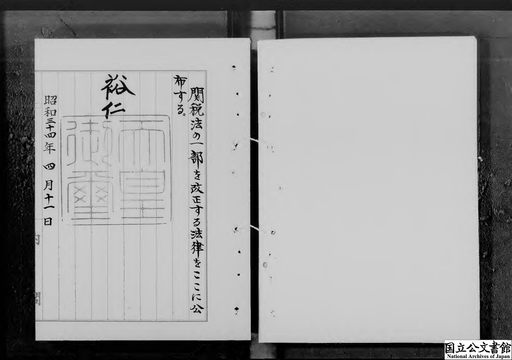 関税法の一部を改正する法律をここに公
布する。
裕仁
天皇
御璽
昭和三十四年四月十一日
内閣
国立公文書館
National Archives of Japan